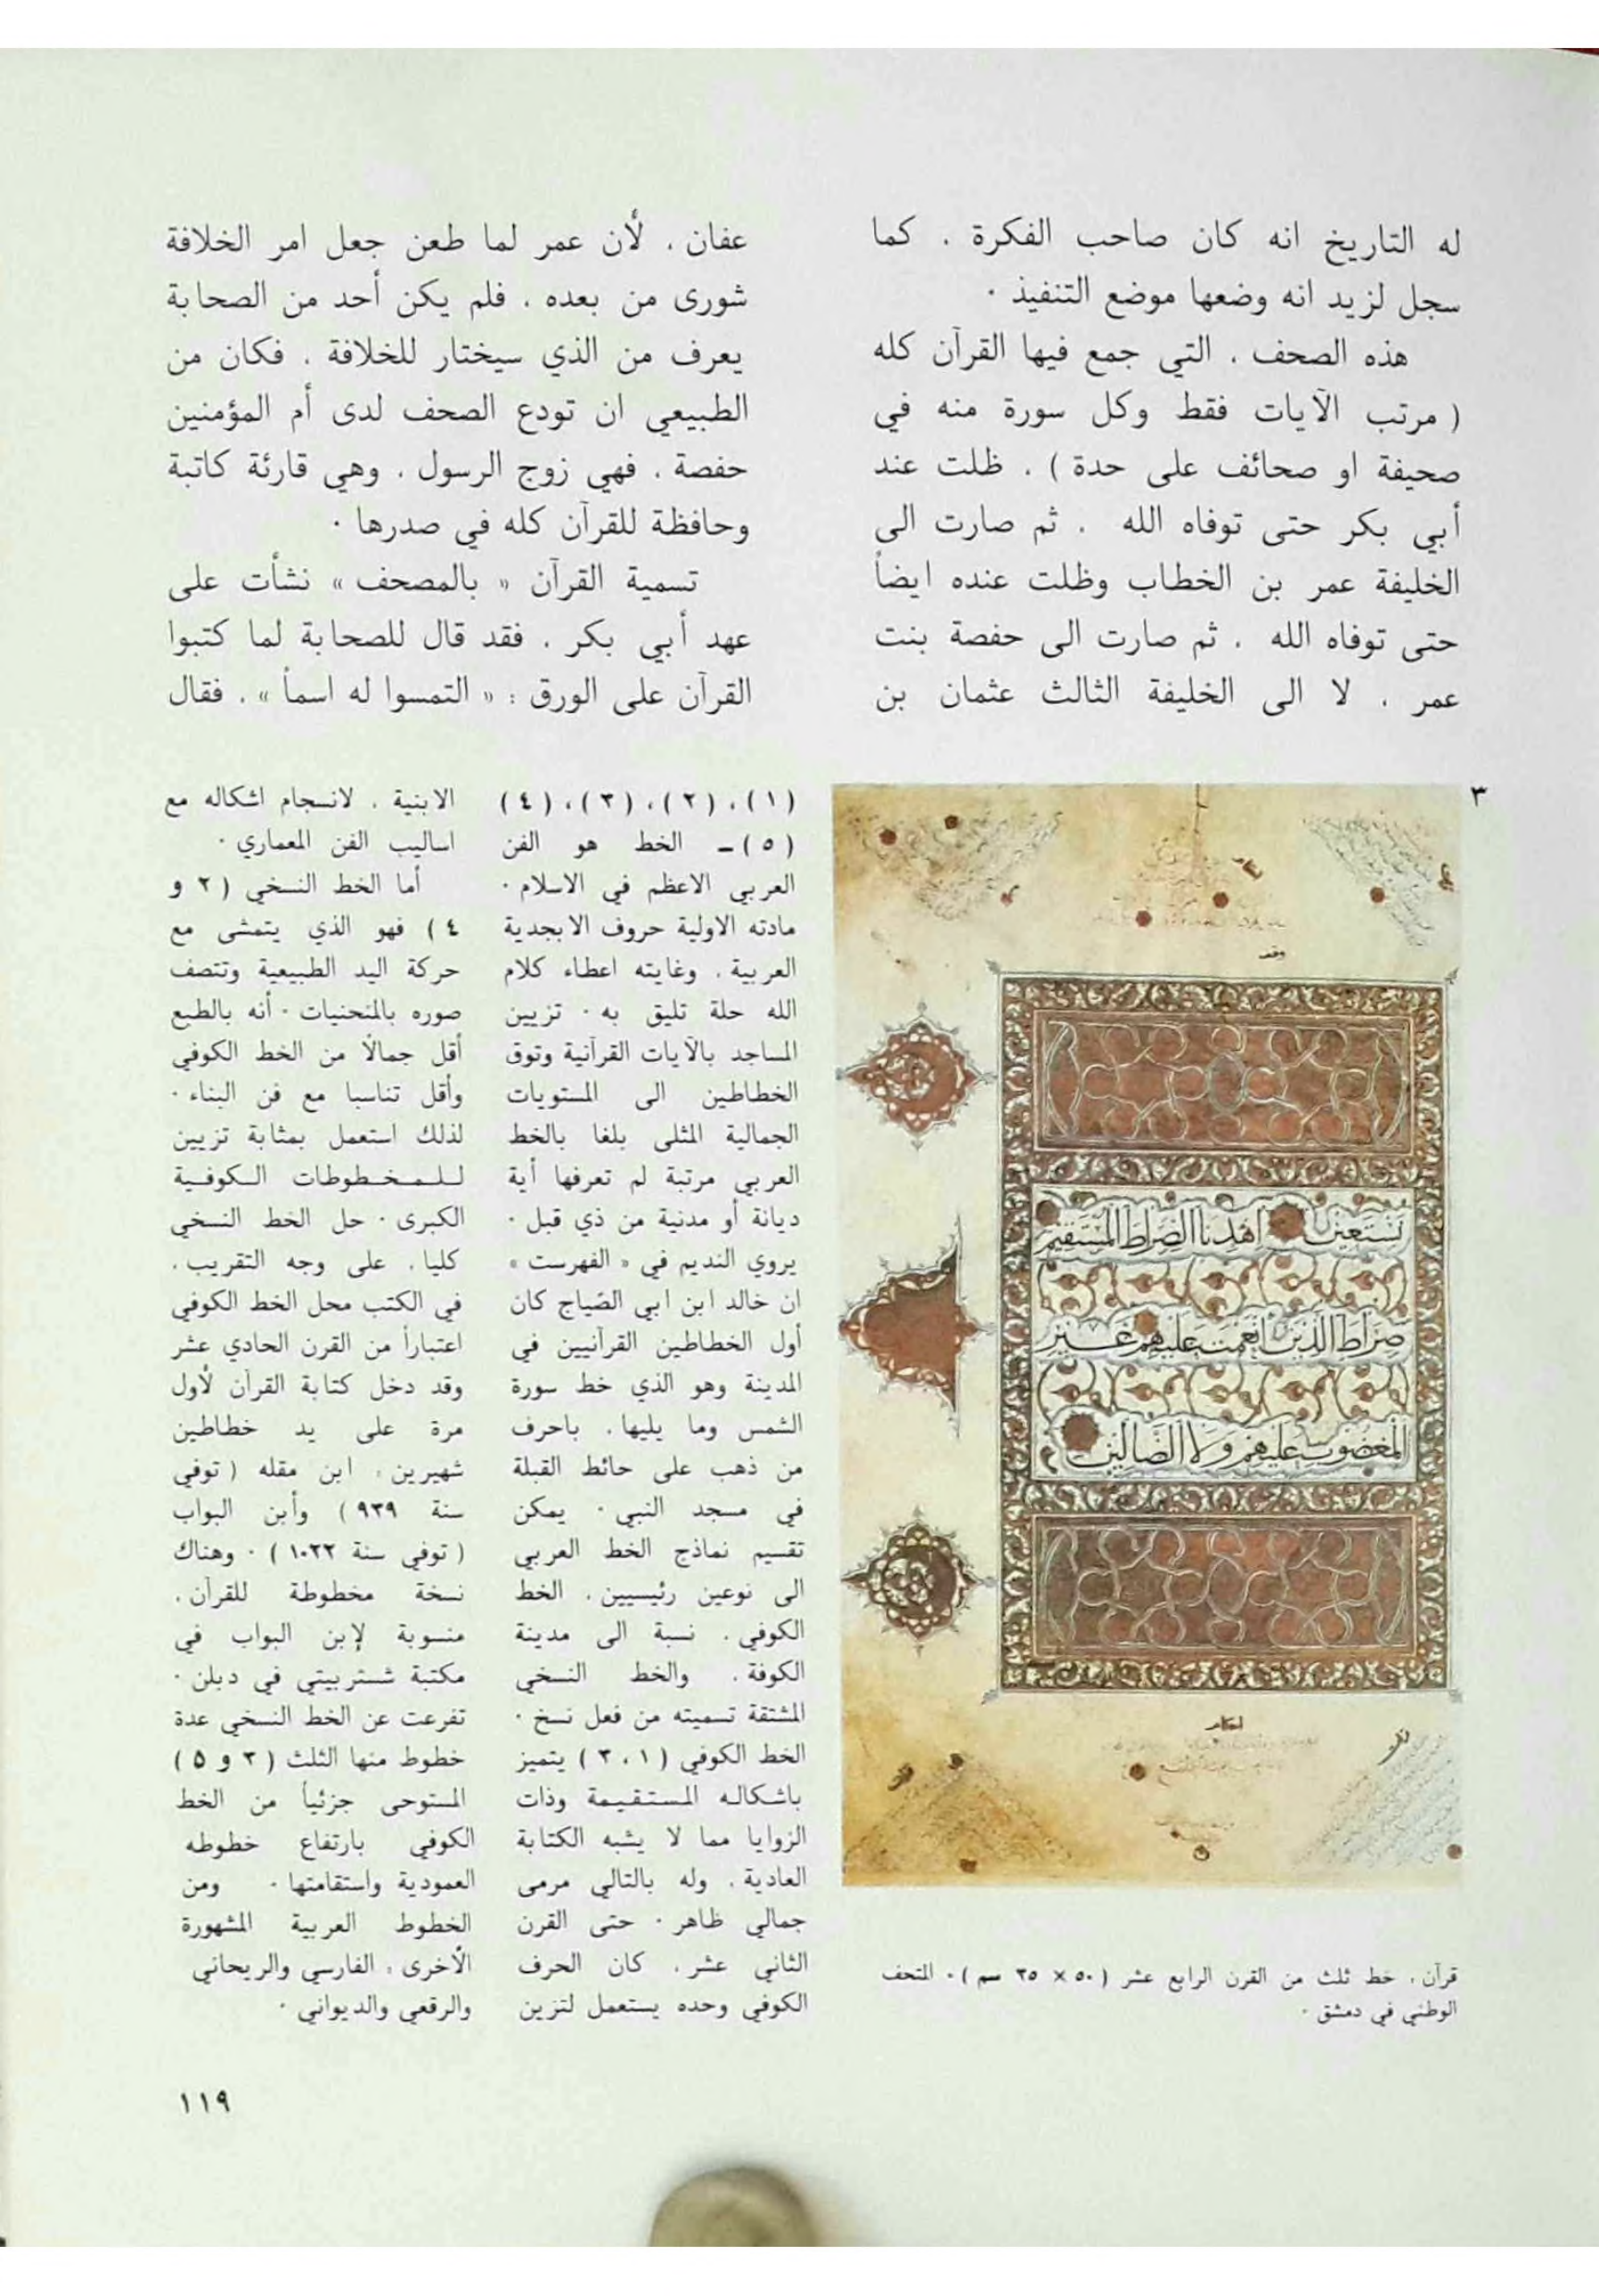 له التاريخ انه كان صاحب الفكرة ، كما
سجل لزيد انه وضعها موضع التنفيذ ·
هذه الصحف ، التي جمع فيها القرآن كله
( مرتب الآيات فقط وكل سورة منه في
صحيفة او صحائف على حدة ) ، ظلت عند
أبي بكر حتى توفاه الله ، ثم صارت الى
الخليفة عمر بن الخطاب وظلت عنده ايضاً
حتى توفاه الله ، ثم صارت الى حفصة بنت
عمر ، لا الى الخليفة الثالث عثمان بن
عفان ، لأن عمر لما طعن جعل امر الخلافة
شورى من بعده ، فلم يكن أحد من الصحابة
يعرف من الذي سيختار للخلافة ، فكان من
الطبيعي ان تودع الصحف لدى أم المؤمنين
حفصة ، فهي زوج الرسول ، وهي قارئة كاتبة
وحافظة للقرآن كله في صدرها ·
تسمية القرآن « بالمصحف » نشأت على
عهد أبي بكر ، فقد قال للصحابة لما كتبوا
القرآن على الورق : « التمسوا له اسماً » ، فقال
٣
وقف
نستعين اهدنا الصراط المستقيم
صراط الذين أنعمت عليهم غير
المغضوب عليهم ولا الضالين
قرآن ، خط ثلث من القرن الرابع عشر ( ٥٠ × ٣٥ سم ) · المتحف
الوطني في دمشق ·
(١) ، (٢) ، (٣) ، (٤)
(٥) – الخط هو الفن
العربي الاعظم في الاسلام ·
مادته الاولية حروف الابجدية
العربية ، وغايته اعطاء كلام
الله حلة تليق به · تزيين
المساجد بالآيات القرآنية وتوق
الخطاطين الى المستويات
الجمالية المثلى بلغا بالخط
العربي مرتبة لم تعرفها أية
ديانة أو مدنية من ذي قبل ·
يروي النديم في « الفهرست »
ان خالد ابن ابي الصّياج كان
أول الخطاطين القرآنيين في
المدينة وهو الذي خط سورة
الشمس وما يليها ، باحرف
من ذهب على حائط القبلة
في مسجد النبي · يمكن
تقسيم نماذج الخط العربي
الى نوعين رئيسيين ، الخط
الكوفي ، نسبة الى مدينة
الكوفة ، والخط النسخي
المشتقة تسميته من فعل نسخ ·
الخط الكوفي ( ١ ، ٣ ) يتميز
باشكاله المستقيمة وذات
الزوايا مما لا يشبه الكتابة
العادية ، وله بالتالي مرمى
جمالي ظاهر · حتى القرن
الثاني عشر ، كان الحرف
الكوفي وحده يستعمل لتزين
الابنية ، لانسجام اشكاله مع
اساليب الفن المعماري ·
أما الخط النسخي ( ٢ و
٤ ) فهو الذي يتمشى مع
حركة اليد الطبيعية وتتصف
صوره بالمنحنيات · أنه بالطبع
أقل جمالاً من الخط الكوفي
وأقل تناسبا مع فن البناء ·
لذلك استعمل بمثابة تزيين
للمخطوطات الكوفية
الكبرى · حل الخط النسخي
كليا ، على وجه التقريب ،
في الكتب محل الخط الكوفي
اعتباراً من القرن الحادي عشر
وقد دخل كتابة القرآن لأول
مرة على يد خطاطين
شهيرين ، ابن مقله ( توفي
سنة ٩٣٩ ) وأبن البواب
( توفي سنة ١٠٢٢ ) · وهناك
نسخة مخطوطة للقرآن ،
منسوبة لإبن البواب في
مكتبة شستربيتي في دبلن ·
تفرعت عن الخط النسخي عدة
خطوط منها الثلث ( ٣ و ٥ )
المستوحى جزئياً من الخط
الكوفي بارتفاع خطوطه
العمودية واستقامتها · ومن
الخطوط العربية المشهورة
الأخرى ، الفارسي والريحاني
والرقعي والديواني ·
١١٩